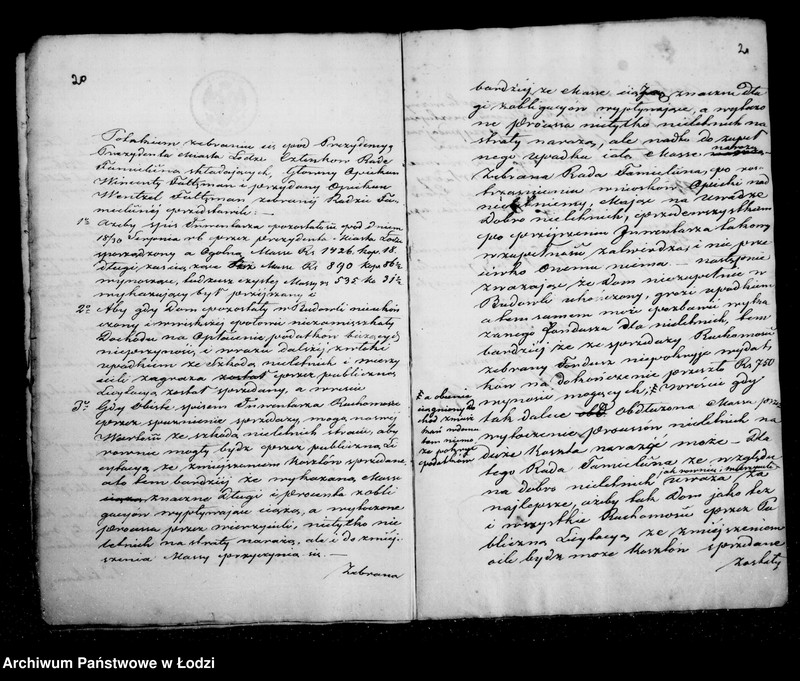 20
Po takiem zebraniu się pod Prezydencyą
Prezydenta Miasta Łodzi Członków Radę
Familijną składających, Główny Opiekun
Wincenty Fültzman i przydany Opiekun
Wentzel Fültzman zebranej Radzie Fa-
milijnej przedstawili: —
1° Ażeby spis Inwentarza pozostałości pod Dniem
18/30 Sierpnia rb przez prezydenta Miasta Łodzi
sporządzony a Ogólną Massę Rs 1426 kop 18
długi zaś ciążące Massę Rs 890 kop 86½
wynoszące, tudzież czystej Massy rs 535 ko 31½
wykazujący był przyjęty i
2° Aby gdy Dom pozostały w Budowli nieukoń
czony i w większej połowie niezamieszkały
Dochodu na Opłacenie podatków bieżących
nieprzynosi, i w razie dalszej zwłoki
upadkiem ze szkodą nieletnich i wierzy
cieli zagraża został przez publiczną
licytacyą został sprzedany, a wreście
3° Gdy Objęte spisem Inwentarza Ruchomości
przez spóźnienie sprzedaży mogą na swej
Wartości ze szkodą nieletnich stracić, aby
równie mogły bydź przez publiczną Li
cytacyą ze zmniejszeniem kosztów sprzedane,
a to tem bardziej że wykazaną Massę
znaczne Długi i procenta z obli
gacyów wypływające ciążą, a wytoczone
processa przez wierzycieli, nietylko nie
letnich na straty narażą, ale i do zmniej-
szenia Massy przyczynią się. —
Zebrana
2
bardziej że Massę ciążą znaczne Dłu
gi z obligacyów wypływające, a wytoczo
ne processa nietylko nieletnich na
straty narażą, ale nadto do zupeł
nego upadku całą Massę narażą
Zebrana Rada Familijna, po roz-
trząśnieniu wniosków Opieki nad
nieletniemi, Mając na uwadze
Dobro nieletnich, i przedewszystkiem
po przejrzeniu Inwentarza takowy
w zupełności zatwierdza i nic prze
ciwko onemu niema — następnie
zważając że Dom niezupełnie w
Budowli ukończony, grozi upadkiem
a tem samem może pozbawić wyka
zanego funduszu dla nieletnich, tem
bardziej że ze sprzedaży Ruchomości
zebrany Fundusz niepokryje wydat
ków na dokończenie przeszło Rs 750
wynosić mogących, wreście gdy
tak dalece Obdłużona Massa przez
wytoczenie processów nieletnich na
duże koszta narazić może — Dla
tego Rada Familijna ze względu
na dobro nieletnich jak również i wierzycieli uważa za
najlepsze, ażeby tak Dom jako też
i wszystkie Ruchomości przez Pu
bliczną Licytacyą ze zmniejszeniem
o ile bydź może kosztów sprzedane
zostały
a obecnie
ciągniony do
chód z miesz
kań
tem niemo
że pokryć
podatków
Archiwum Państwowe w Łodzi